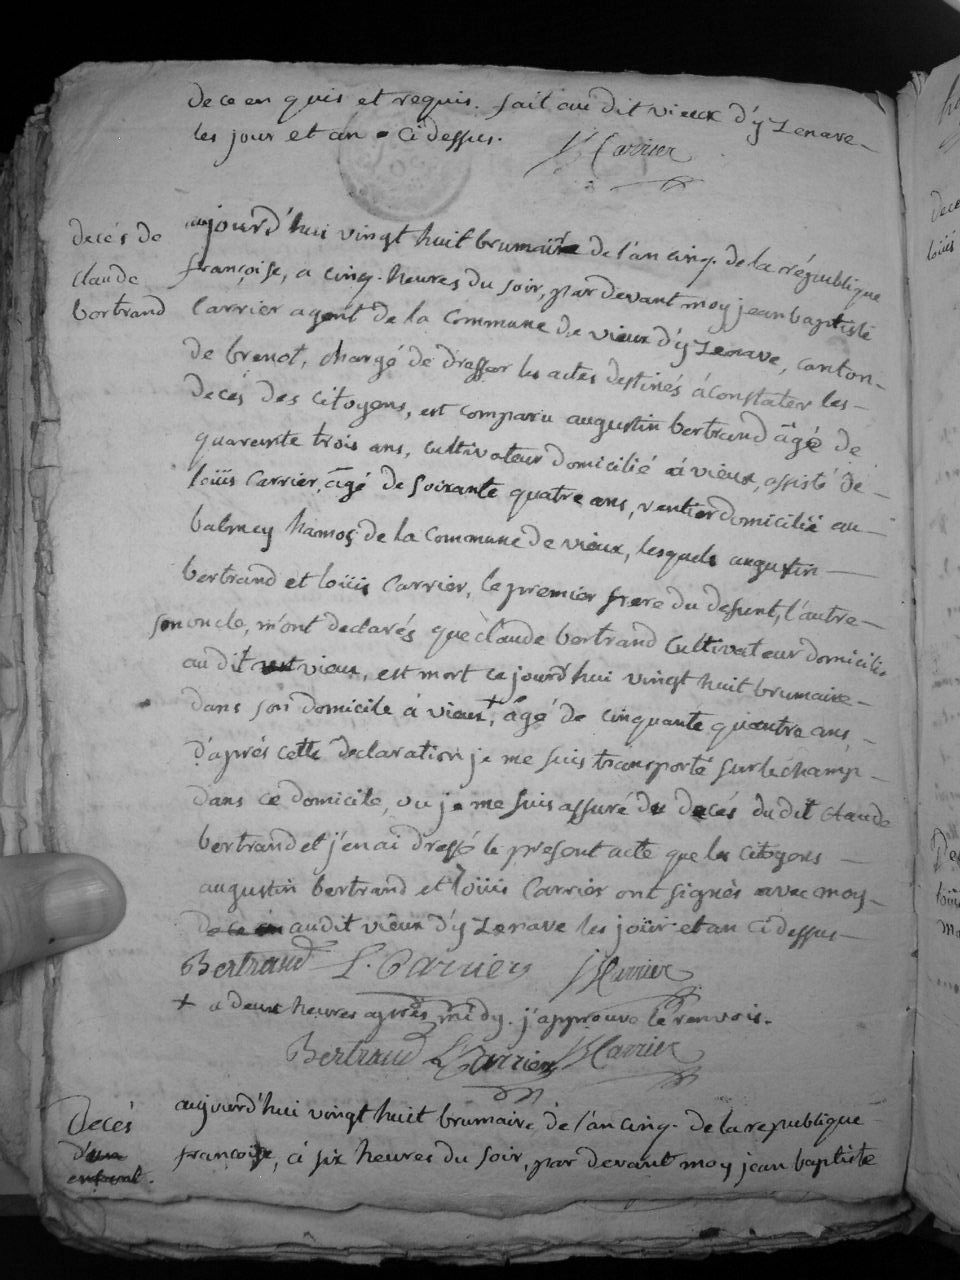 de ce en quis et requis. fait au dit vieux d'yzenave
les jour et an ci dessus.
JB Carrier
decés de
claude
bertrand
aujourd'hui vingt huit brumaire de l'an cinq. de la république
françoise, a cinq. heures du soir, par devant moy jean baptiste
Carrier agent de la Commune de vieux d'yzenave, canton
de brenot, chargé de dresser les actes destinés á constater les
decés des citoyens, est comparu augustin bertrand âgé de
quarante trois ans, cultivateur domicilié á vieux, assisté de
loüis Carrier, âgé de soixante quatre ans, rentier domicilié au
balmey hamos de la Commune de vieux, lesquels augustin
bertrand et loüis Carrier, le premier frere du defunt, l'autre
son oncle, m'ont declarés que claude bertrand Cultivateur domicilié
au dit vieux, est mort ce jourd'hui vingt huit brumaire
dans son domicile á vieux, + âgé de cinquante quautre ans
d'aprés cette declaration je me suis transporté sur le champ
dans ce domicile, ou je me suis assuré du decés du dit claude
bertrand et j'en ai dressé le present acte que les citoyens
augustin bertrand et loüis Carrier ont signés avec moy
audit vieux d'yzenave les joür et an ci dessus
Bertrand L. Carrier JB Carrier
+ a deux heures aprés midy. j'approuve le renvois.
Bertrand L Carrier JB Carrier
Decés
d'un
enfant.
aujourd'hui vingt huit brumaire de l'an cinq. de la republique
françoise, á six heures du soir, par devant moy jean baptiste